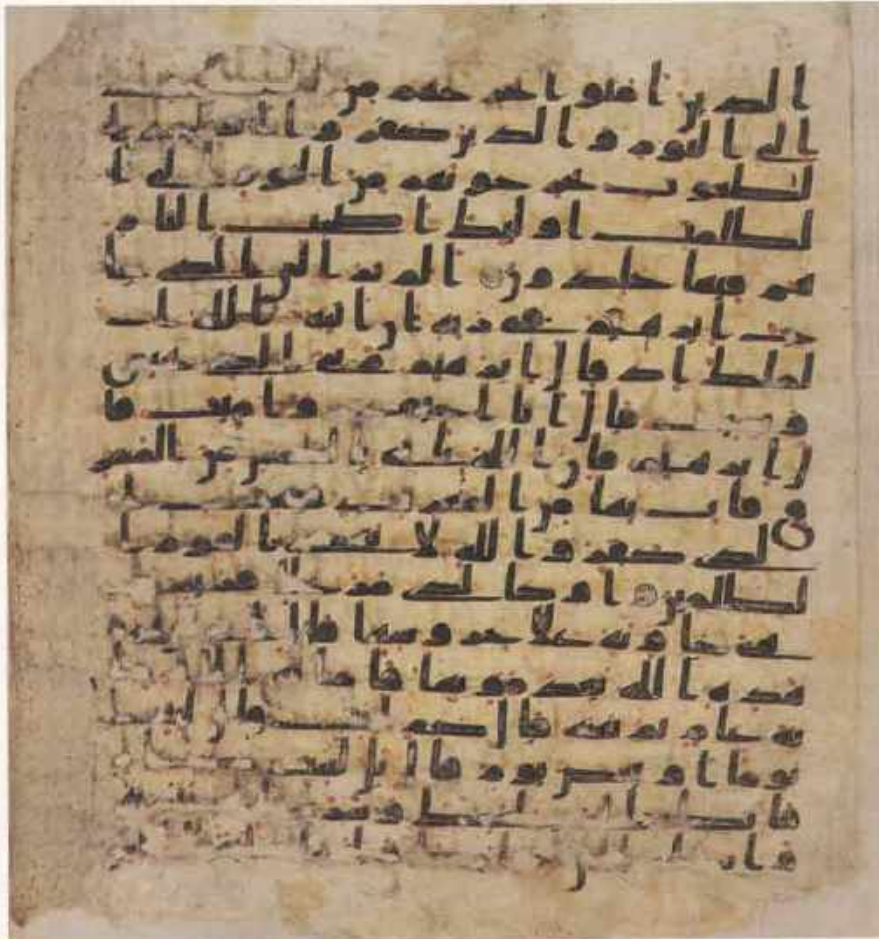 الذين امنوا يخرجهم من الظلمت
الى النور والذين كفروا اوليهم ا
لطغوت يخرجونهم من النور الى ا
لظلمت اوليك اصحب النار
هم فيها خلدون الم تر الى الذي حا
ج ابرهيم في ربه ان اتيه الله ا
لملك اذ قال ابرهيم ربي الذي يحيي
ويميت قال انا احيي واميت قا
ل ابرهيم فان الله ياتي بالشمس من المشر
ق فات بها من المغرب فبهت ا
لذي كفر والله لا يهدي القوم ا
لظلمين او كالذي مر على قرية و
هي خاوية على عروشها قال انى يحيي
هذه الله بعد موتها فاماته الله ما
ية عام ثم بعثه قال كم لبثت قال لبثت
يوما او بعض يوم قال بل لبثت
فانظر الى